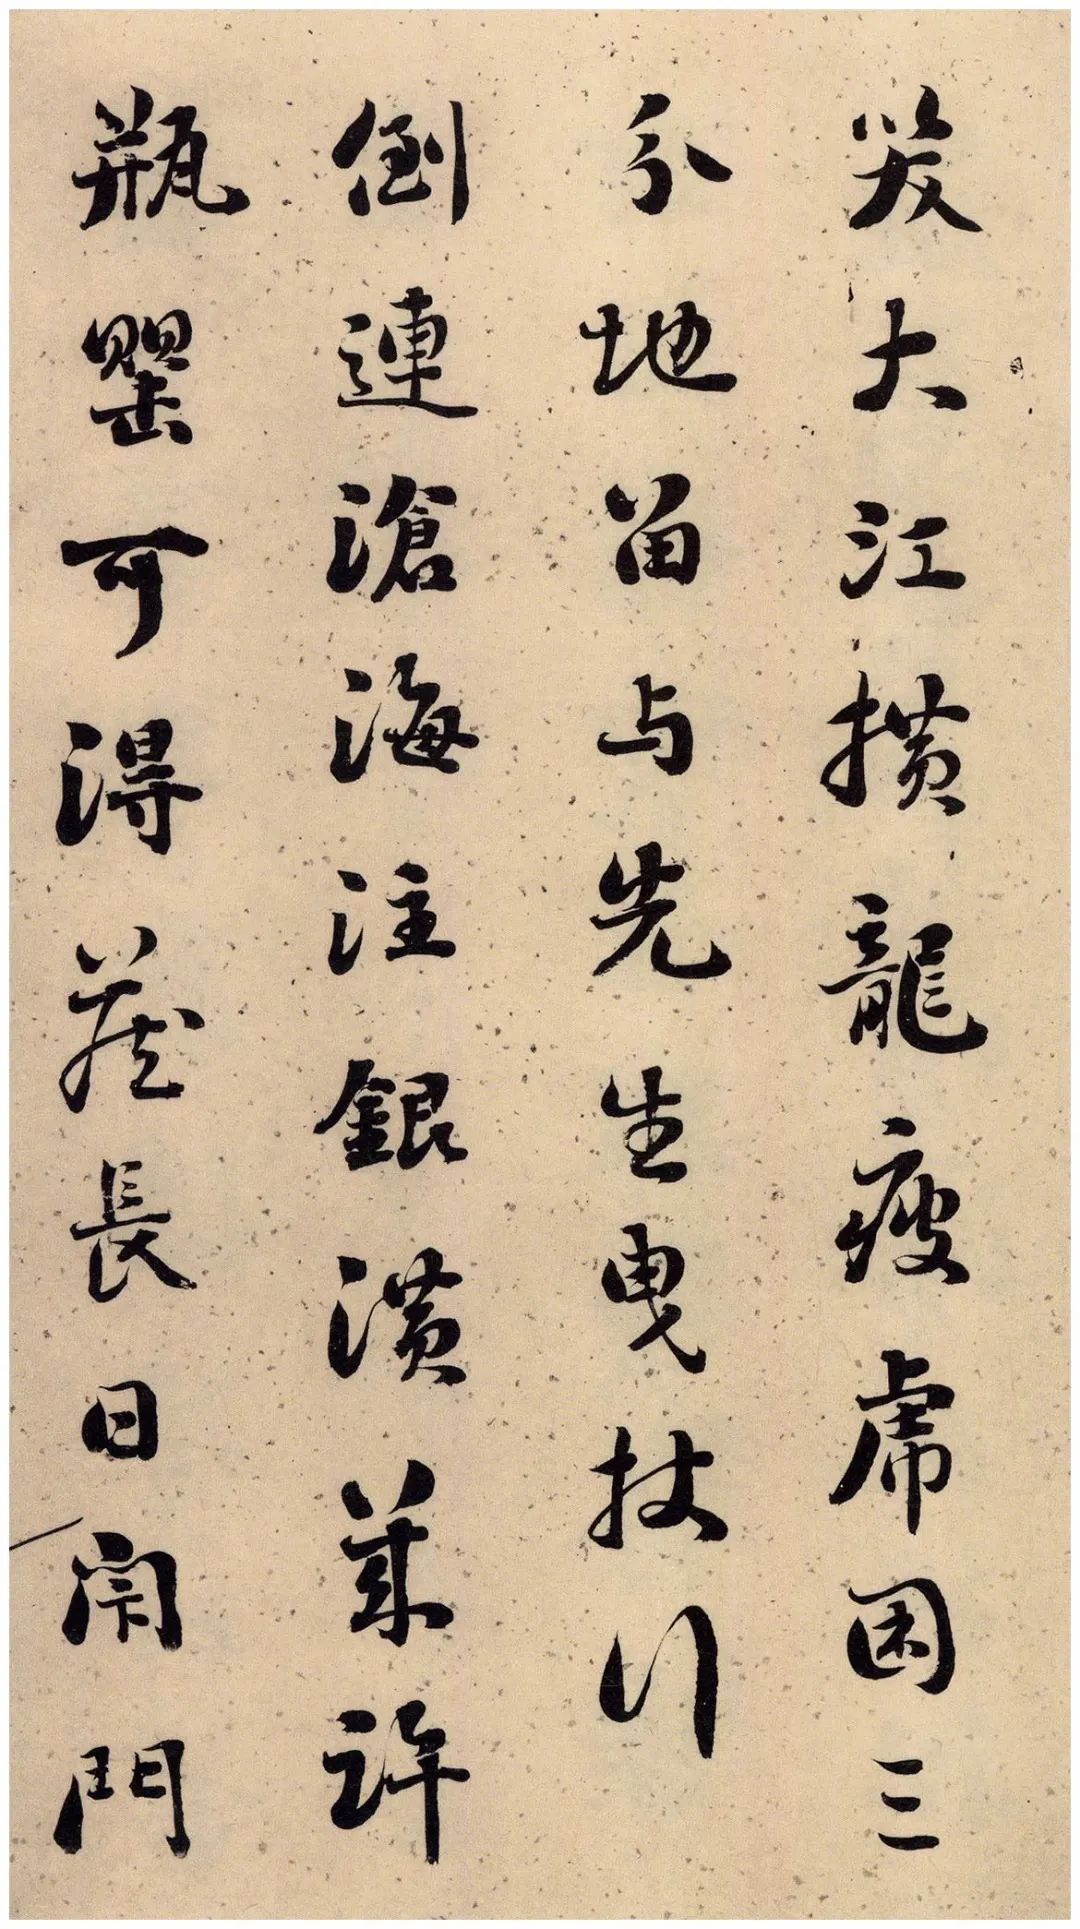 笑大江横龍瘦虎困三
分地留与先生曳杖行
倒連滄海注銀潢幾許
瓶罌可得藏長日閉門